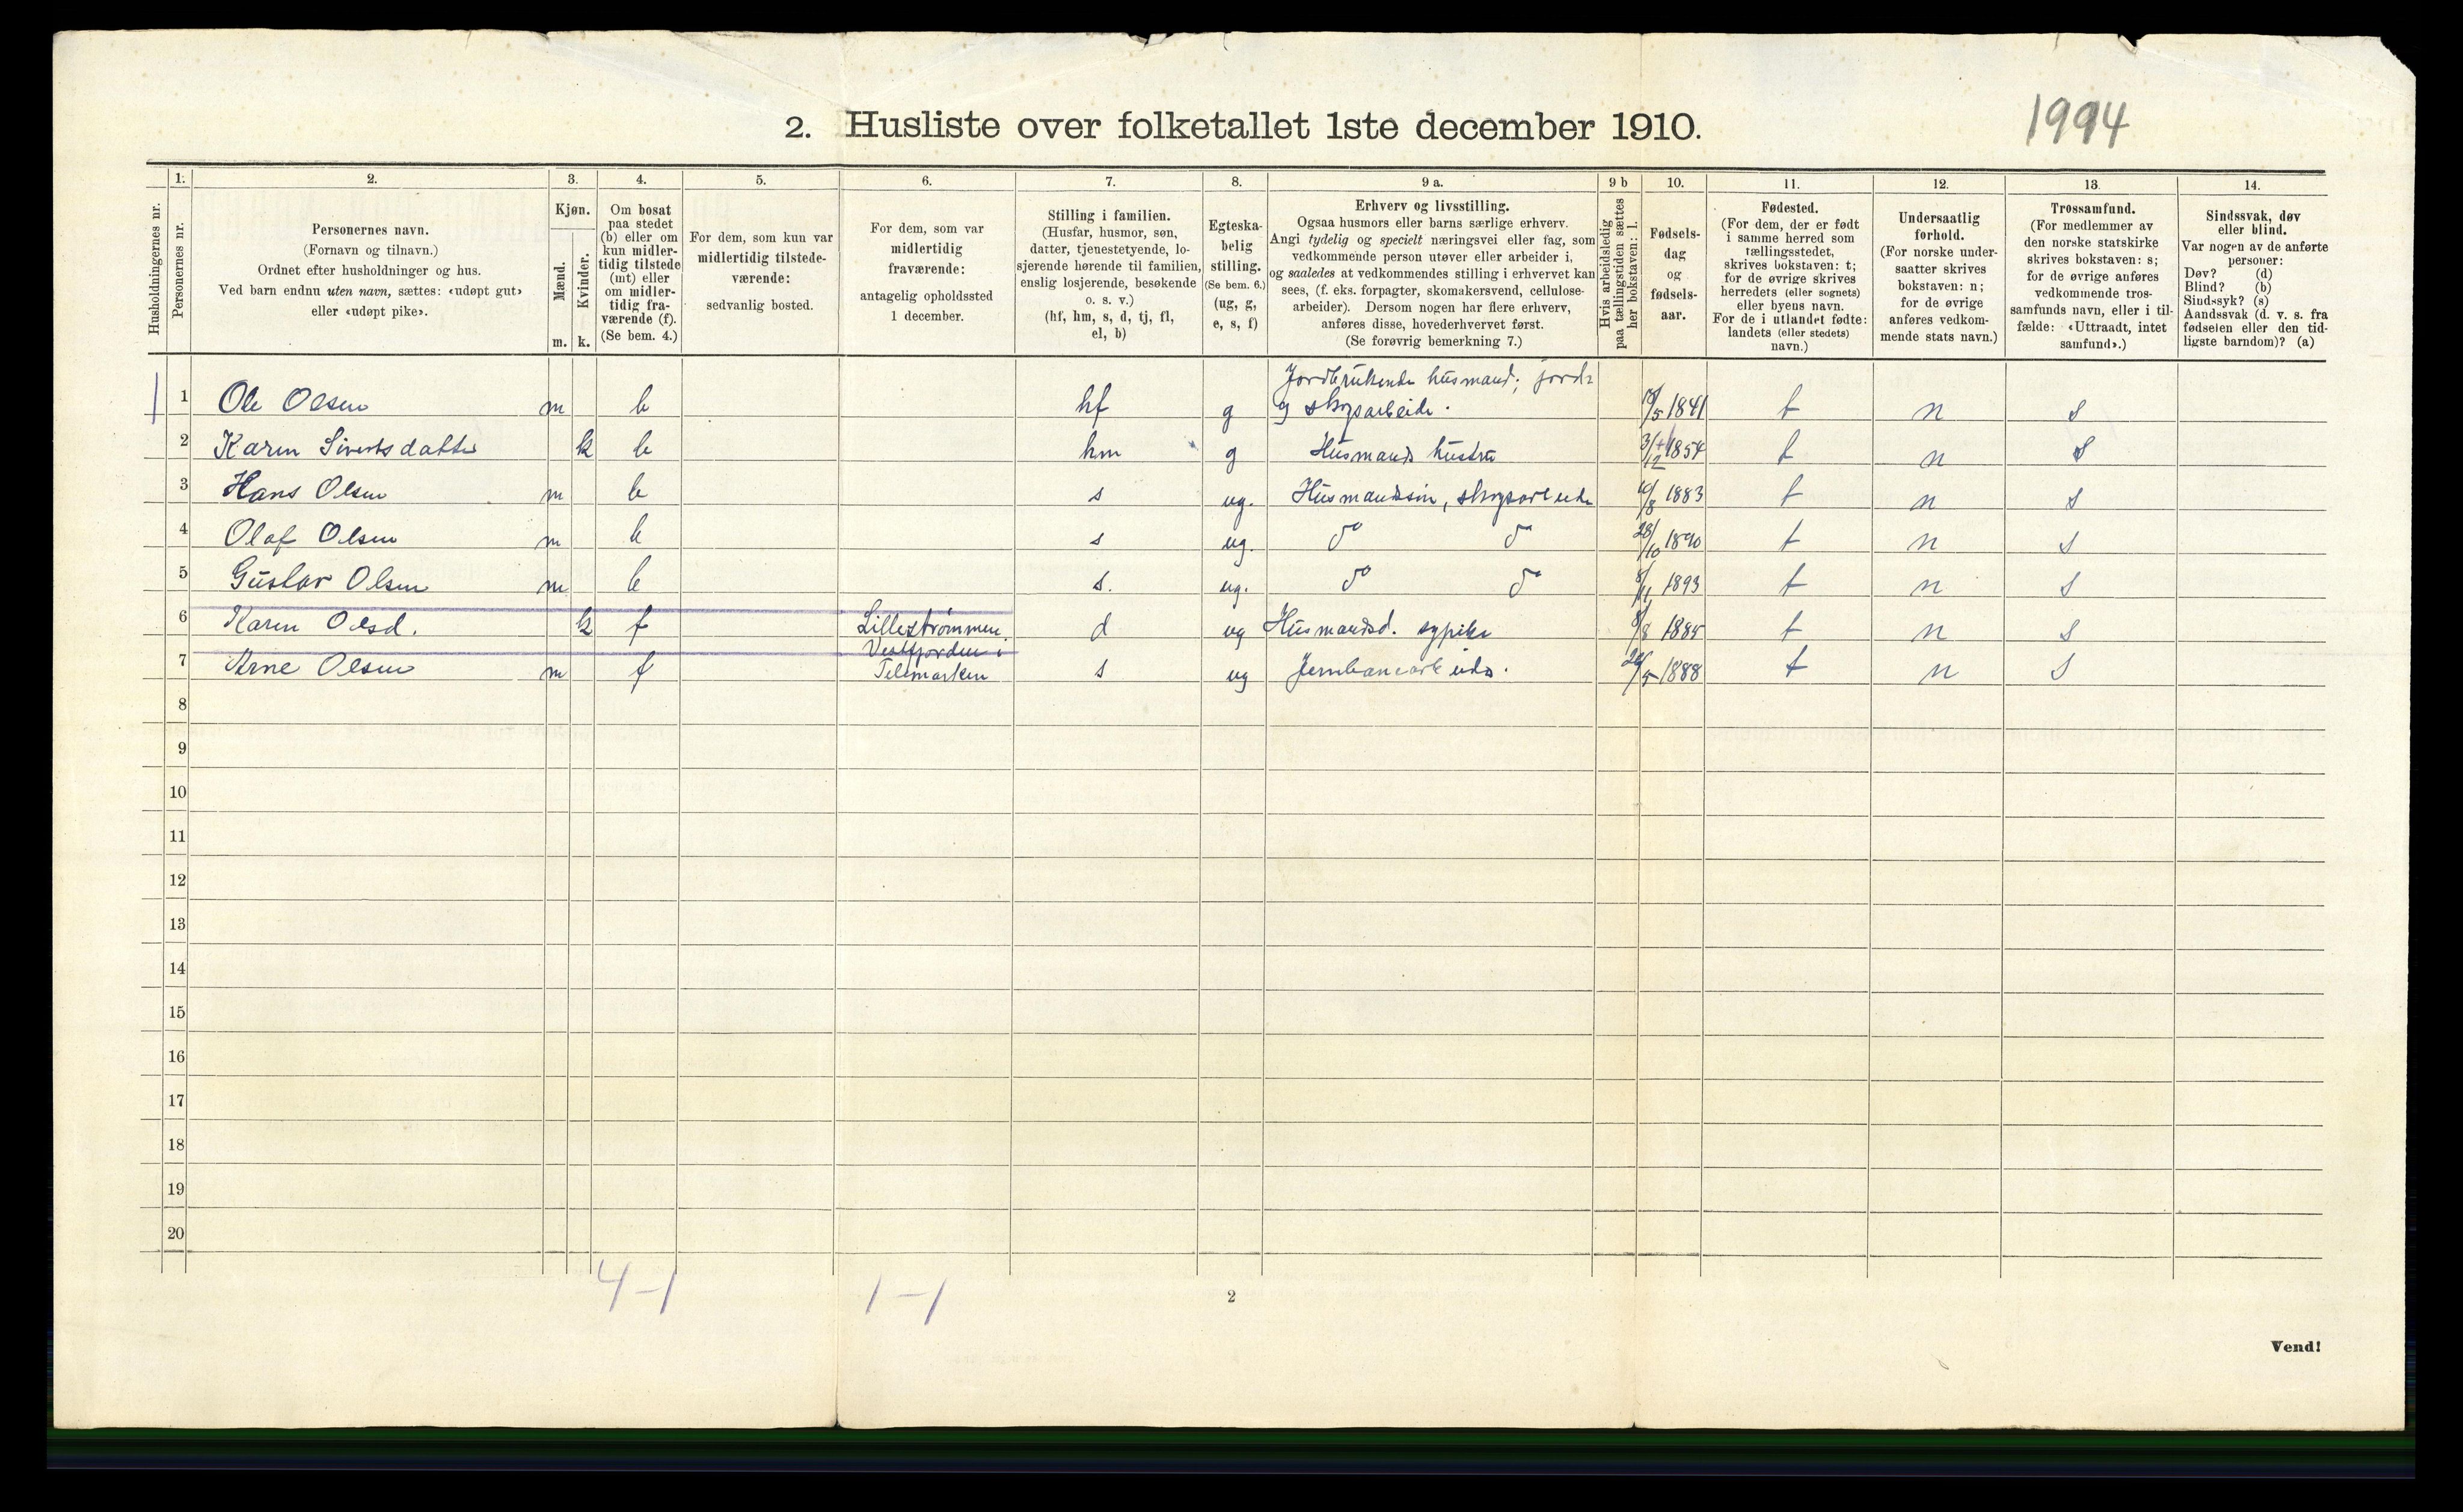 1994
2. Husliste over folketallet 1ste december 1910.
Husholdningernes nr.
1.
Personernes nr.
2.
Personernes navn.
(Fornavn og tilnavn.)
Ordnet efter husholdninger og hus.
Ved barn endnu uten navn, sættes: «udøpt gut»
eller «udøpt pike».
3.
Kjøn.
Mænd.
Kvinder.
m. k.
4.
Om bosat
paa stedet
(b) eller om
kun midler-
tidig tilstede
(mt) eller
om midler-
tidig fra-
værende (f).
(Se bem. 4.)
5.
For dem, som kun var
midlertidig tilstede-
værende:
sedvanlig bosted.
6.
For dem, som var
midlertidig
fraværende:
antagelig opholdssted
1 december.
7.
Stilling i familien.
(Husfar, husmor, søn,
datter, tjenestetyende, lo-
sjerende hørende til familien,
enslig losjerende, besøkende
o. s. v.)
(hf, hm, s, d, tj, fl,
el, b)
8.
Egteska-
belig
stilling.
(Se bem. 6.)
(ug, g,
e, s, f)
9 a.
Erhverv og livsstilling.
Ogsaa husmors eller barns særlige erhverv.
Angi tydelig og specielt næringsvei eller fag, som
vedkommende person utøver eller arbeider i,
og saaledes at vedkommendes stilling i erhvervet kan
sees, (f. eks. forpagter, skomakersvend, cellulose-
arbeider). Dersom nogen har flere erhverv,
anføres disse, hovederhvervet først.
(Se forøvrig bemerkning 7.)
9 b
Hvis arbeidsledig
paa tællingstiden sættes
her bokstaven: l.
10.
Fødsels-
dag
og
fødsels-
aar.
11.
Fødested.
(For dem, der er født
i samme herred som
tællingsstedet,
skrives bokstaven: t;
for de øvrige skrives
herredets (eller sognets)
eller byens navn.
For de i utlandet fødte:
landets (eller stedets)
navn.)
12.
Undersaatlig
forhold.
(For norske under-
saatter skrives
bokstaven: n;
for de øvrige
anføres vedkom-
mende stats navn.)
13.
Trossamfund.
(For medlemmer av
den norske statskirke
skrives bokstaven: s;
for de øvrige anføres
vedkommende tros-
samfunds navn, eller i til-
fælde: «Uttraadt, intet
samfund».)
14.
Sindssvak, døv
eller blind.
Var nogen av de anførte
personer:
Døv? (d)
Blind? (b)
Sindssyk? (s)
Aandssvak (d. v. s. fra
fødselen eller den tid-
ligste barndom)? (a)
Jordbrukende husmand; jord-
1 Ole Olsen m b hf g og skogsarbeide. /5 1841 t n s
2 Karen Sivertsdatter k b hm g Husmands hustru 3/12 1854 t n s
3 Hans Olsen m b s ug. Husmandssøn, skogsarbeider /8 1883 t n s
4 Olaf Olsen m b s ug. do do 28/10 1890 t n s
5 Gustav Olsen m b s. ug. do do 8/11 1893 t n s
6 Karen Olsd. k f Lillestrømmen. d ug Husmandsd. sypike 8/8 1885 t n s
Vestfjorden i
7 Arne Olsen m f Telemarken s ug Jernbanearbeider. /5 1888 t n s
8
9
10
11
12
13
14
15
16
17
18
19
20
4-1 1-1
2
Vend!